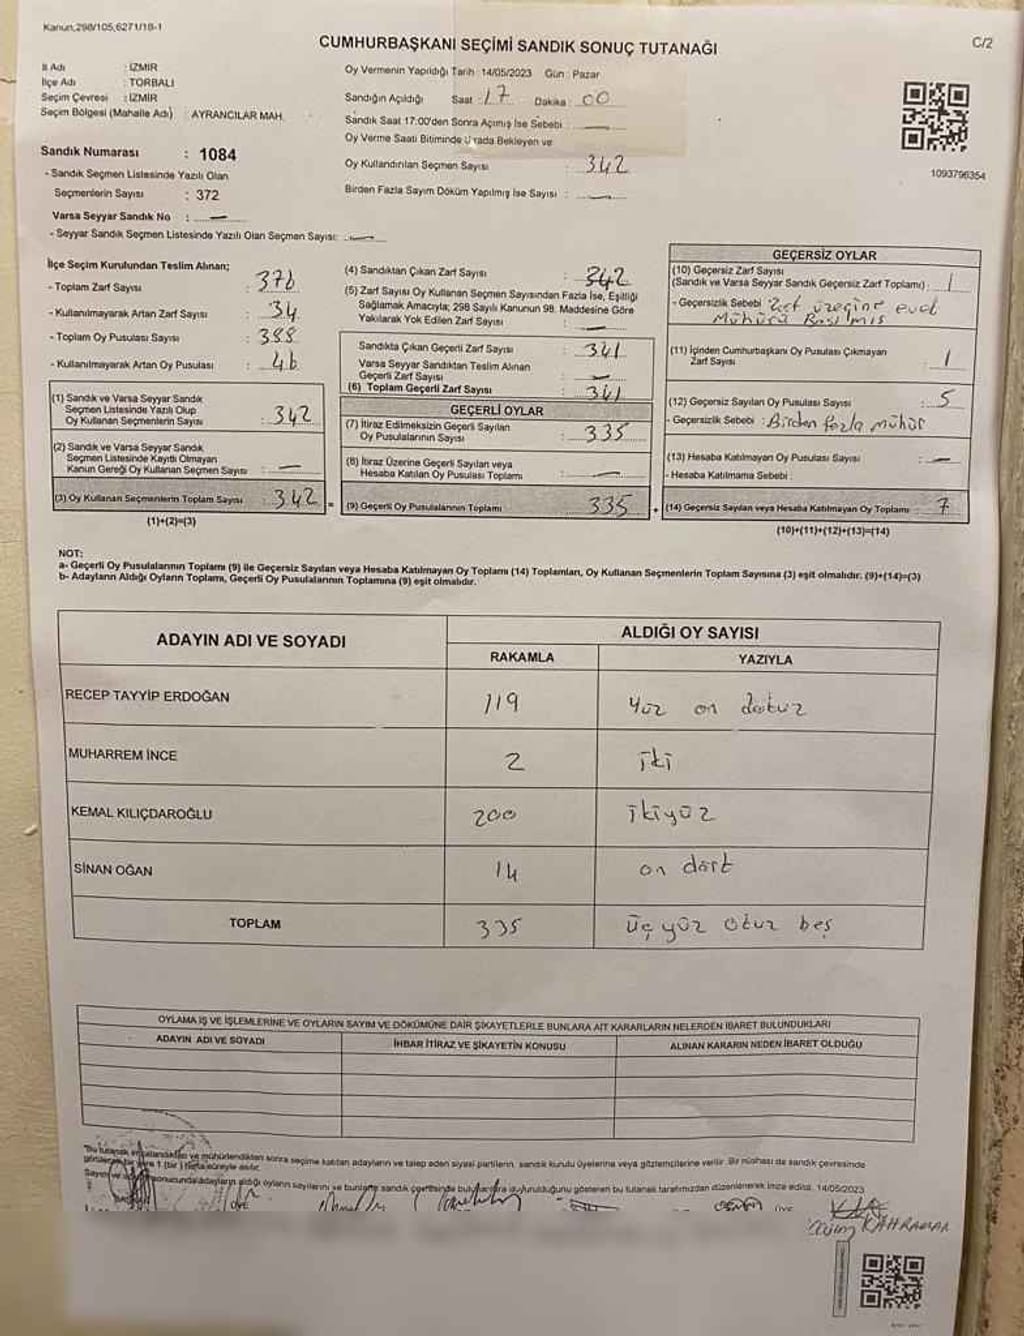 Kanun,298/105,6271/18-1
C/2
CUMHURBAŞKANI SEÇİMİ SANDIK SONUÇ TUTANAĞI
İl Adı : İZMİR
İlçe Adı : TORBALI
Seçim Çevresi : İZMİR
Seçim Bölgesi (Mahalle Adı) : AYRANCILAR MAH.
Oy Vermenin Yapıldığı Tarih : 14/05/2023 Gün : Pazar
Sandığın Açıldığı Saat : 17 Dakika : 00
Sandık Saat 17:00'den Sonra Açımış İse Sebebi : —
Oy Verme Saati Bitiminde Sırada Bekleyen ve
Oy Kullandırılan Seçmen Sayısı : 342
Birden Fazla Sayım Döküm Yapılmış İse Sayısı : —
1093796354
Sandık Numarası : 1084
- Sandık Seçmen Listesinde Yazılı Olan
Seçmenlerin Sayısı : 372
Varsa Seyyar Sandık No : —
- Seyyar Sandık Seçmen Listesinde Yazılı Olan Seçmen Sayısı: —
İlçe Seçim Kurulundan Teslim Alınan;
- Toplam Zarf Sayısı : 376
- Kullanılmayarak Artan Zarf Sayısı : 34
- Toplam Oy Pusulası Sayısı : 388
- Kullanılmayarak Artan Oy Pusulası : 46
(1) Sandık ve Varsa Seyyar Sandık
Seçmen Listesinde Yazılı Olup
Oy Kullanan Seçmenlerin Sayısı : 342
(2) Sandık ve Varsa Seyyar Sandık
Seçmen Listesinde Kayıtlı Olmayan
Kanun Gereği Oy Kullanan Seçmen Sayısı : —
(3) Oy Kullanan Seçmenlerin Toplam Sayısı : 342 =
(1)+(2)=(3)
(4) Sandıktan Çıkan Zarf Sayısı : 342
(5) Zarf Sayısı Oy Kullanan Seçmen Sayısından Fazla İse, Eşitliği
Sağlamak Amacıyla; 298 Sayılı Kanunun 98. Maddesine Göre
Yakılarak Yok Edilen Zarf Sayısı : —
Sandıkta Çıkan Geçerli Zarf Sayısı : 341
Varsa Seyyar Sandıktan Teslim Alınan
Geçerli Zarf Sayısı : —
(6) Toplam Geçerli Zarf Sayısı : 341
GEÇERLİ OYLAR
(7) İtiraz Edilmeksizin Geçerli Sayılan
Oy Pusulalarının Sayısı : 335
(8) İtiraz Üzerine Geçerli Sayılan veya
Hesaba Katılan Oy Pusulası Toplamı : —
(9) Geçerli Oy Pusulalarının Toplamı 335 +
GEÇERSİZ OYLAR
(10) Geçersiz Zarf Sayısı
(Sandık ve Varsa Seyyar Sandık Geçersiz Zarf Toplamı) : 1
- Geçersizlik Sebebi : Zarf üzerine evet
Mührü Basılmış
(11) İçinden Cumhurbaşkanı Oy Pusulası Çıkmayan
Zarf Sayısı : 1
(12) Geçersiz Sayılan Oy Pusulası Sayısı : 5
- Geçersizlik Sebebi : Birden fazla mühür
(13) Hesaba Katılmayan Oy Pusulası Sayısı : —
- Hesaba Katılmama Sebebi :
(14) Geçersiz Sayılan veya Hesaba Katılmayan Oy Toplamı : 7
(10)+(11)+(12)+(13)=(14)
NOT:
a- Geçerli Oy Pusulalarının Toplamı (9) ile Geçersiz Sayılan veya Hesaba Katılmayan Oy Toplamı (14) Toplamları, Oy Kullanan Seçmenlerin Toplam Sayısına (3) eşit olmalıdır. (9)+(14)=(3)
b- Adayların Aldığı Oyların Toplamı, Geçerli Oy Pusulalarının Toplamına (9) eşit olmalıdır.
ADAYIN ADI VE SOYADI
ALDIĞI OY SAYISI
RAKAMLA YAZIYLA
RECEP TAYYİP ERDOĞAN 119 Yüz on dokuz
MUHARREM İNCE 2 iki
KEMAL KILIÇDAROĞLU 200 ikiyüz
SİNAN OĞAN 14 on dört
TOPLAM 335 üç yüz otuz beş
OYLAMA İŞ VE İŞLEMLERİNE VE OYLARIN SAYIM VE DÖKÜMÜNE DAİR ŞİKAYETLERLE BUNLARA AİT KARARLARIN NELERDEN İBARET BULUNDUKLARI
ADAYIN ADI VE SOYADI İHBAR İTİRAZ VE ŞİKAYETİN KONUSU ALINAN KARARIN NEDEN İBARET OLDUĞU
Bu tutanak ve mühürlendikten sonra seçime katılan adayların ve talep eden siyasi partilerin, sandık kurulu üyelerine veya gözlemcilerine verilir. Bir nüshası da sandık çevresinde
1 (bir) hafta süreyle asılır.
sonucunda adayların aldığı oyların sayılarını ve bunların sandık çevresinde duyurulduğunu gösteren bu tutanak tarafımızdan düzenlenerek imza edildi. 14/05/2023
ÜYE ÜYE
KAHRAMAN